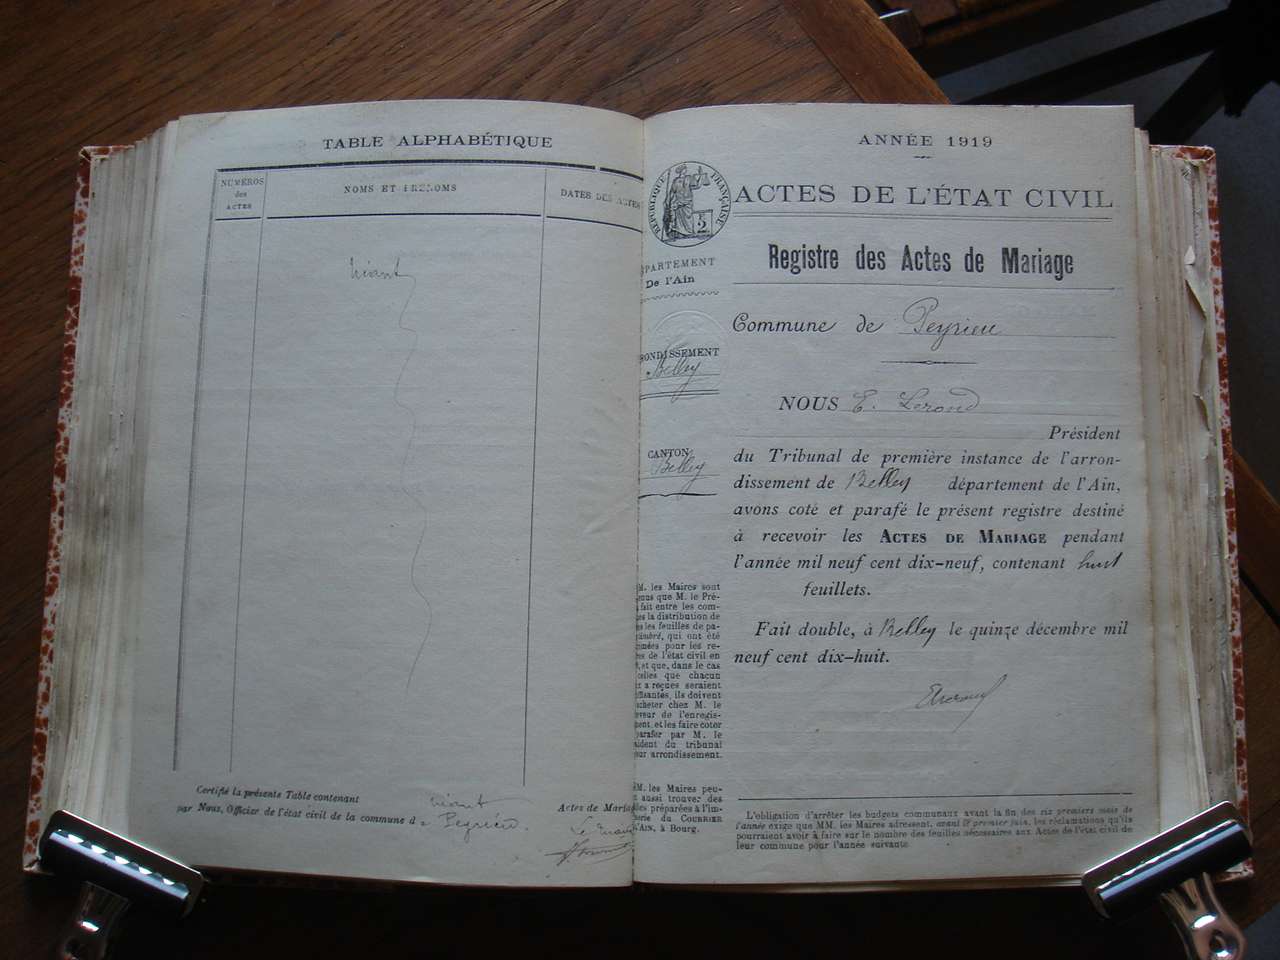 TABLE ALPHABÉTIQUE
NUMÉROS
des
ACTES
NOMS ET PRÉNOMS
DATES DES ACTES
Néant
Certifié la présente Table contenant néant Actes de Mariage
par Nous, Officier de l'état civil de la commune de Peyrieu.
Le Maire
ANNÉE 1919
RÉPUBLIQUE FRANÇAISE
2
ACTES DE L'ÉTAT CIVIL
PARTEMENT
De l'Ain
Registre des Actes de Mariage
Commune de Peyrieu
RONDISSEMENT
Belley
NOUS E. Lerond
Président
CANTON
Belley
du Tribunal de première instance de l'arron-
dissement de Belley département de l'Ain,
avons coté et parafé le présent registre destiné
à recevoir les ACTES DE MARIAGE pendant
l'année mil neuf cent dix-neuf, contenant huit
feuillets.
Fait double, à Belley le quinze décembre mil
neuf cent dix-huit.
M. les Maires sont
nus que M. le Pré-
fait entre les com-
es la distribution de
les feuilles de pa-
timbré, qui ont été
pour les re-
es de l'état civil en
, et que, dans le cas
celles que chacun
x a reçues seraient
ffisantes, ils doivent
acheter chez M. le
eveur de l'enregis-
ment, et les faire coter
parafer par M. le
sident du tribunal
eur arrondissement.
MM. les Maires peu-
t aussi trouver des
les préparées à l'im-
erie du COURRIER
L'AIN, à Bourg.
L'obligation d'arrêter les budgets communaux avant la fin des six premiers mois de
l'année exige que MM. les Maires adressent, avant le premier juin, les réclamations qu'ils
pourraient avoir à faire sur le nombre des feuilles nécessaires aux Actes de l'état civil de
leur commune pour l'année suivante